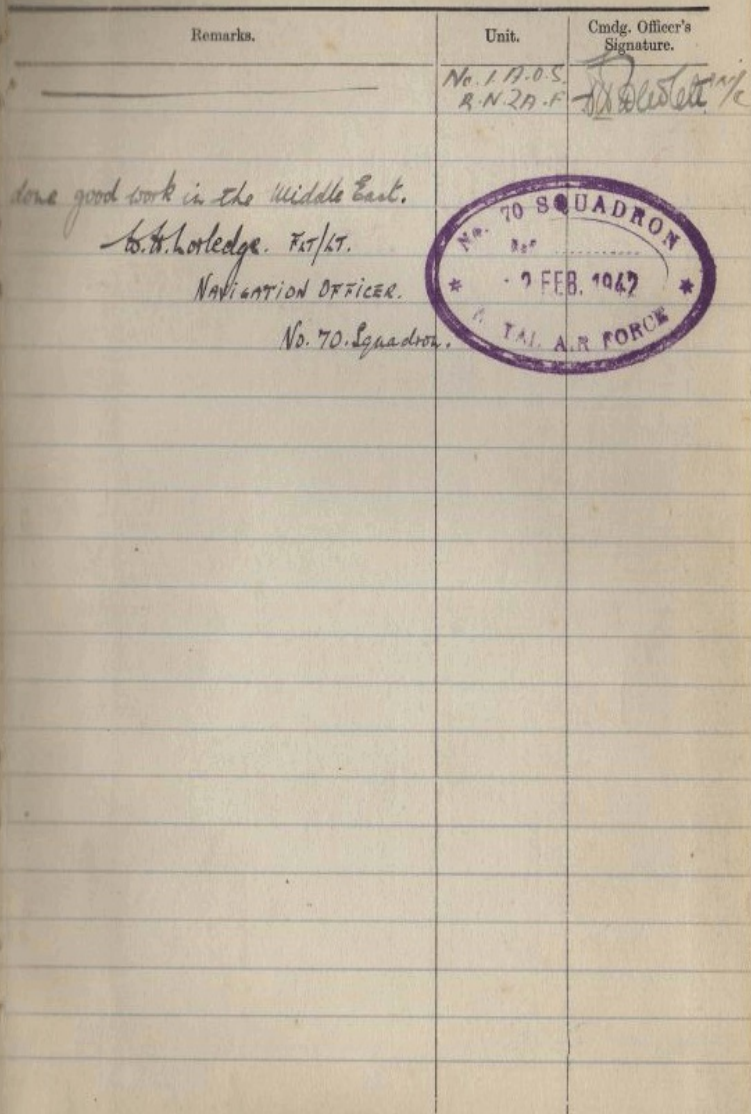 Remarks. Unit. Cmdg. Officer's Signature.
No. 1. A.O.S.
R.N.Z.A.F
done good work in the Middle East.
FLT/LT.
NAVIGATION OFFICER.
No. 70. Squadron.
No. 70 SQUADRON
2 FEB. 1942
AIR FORCE